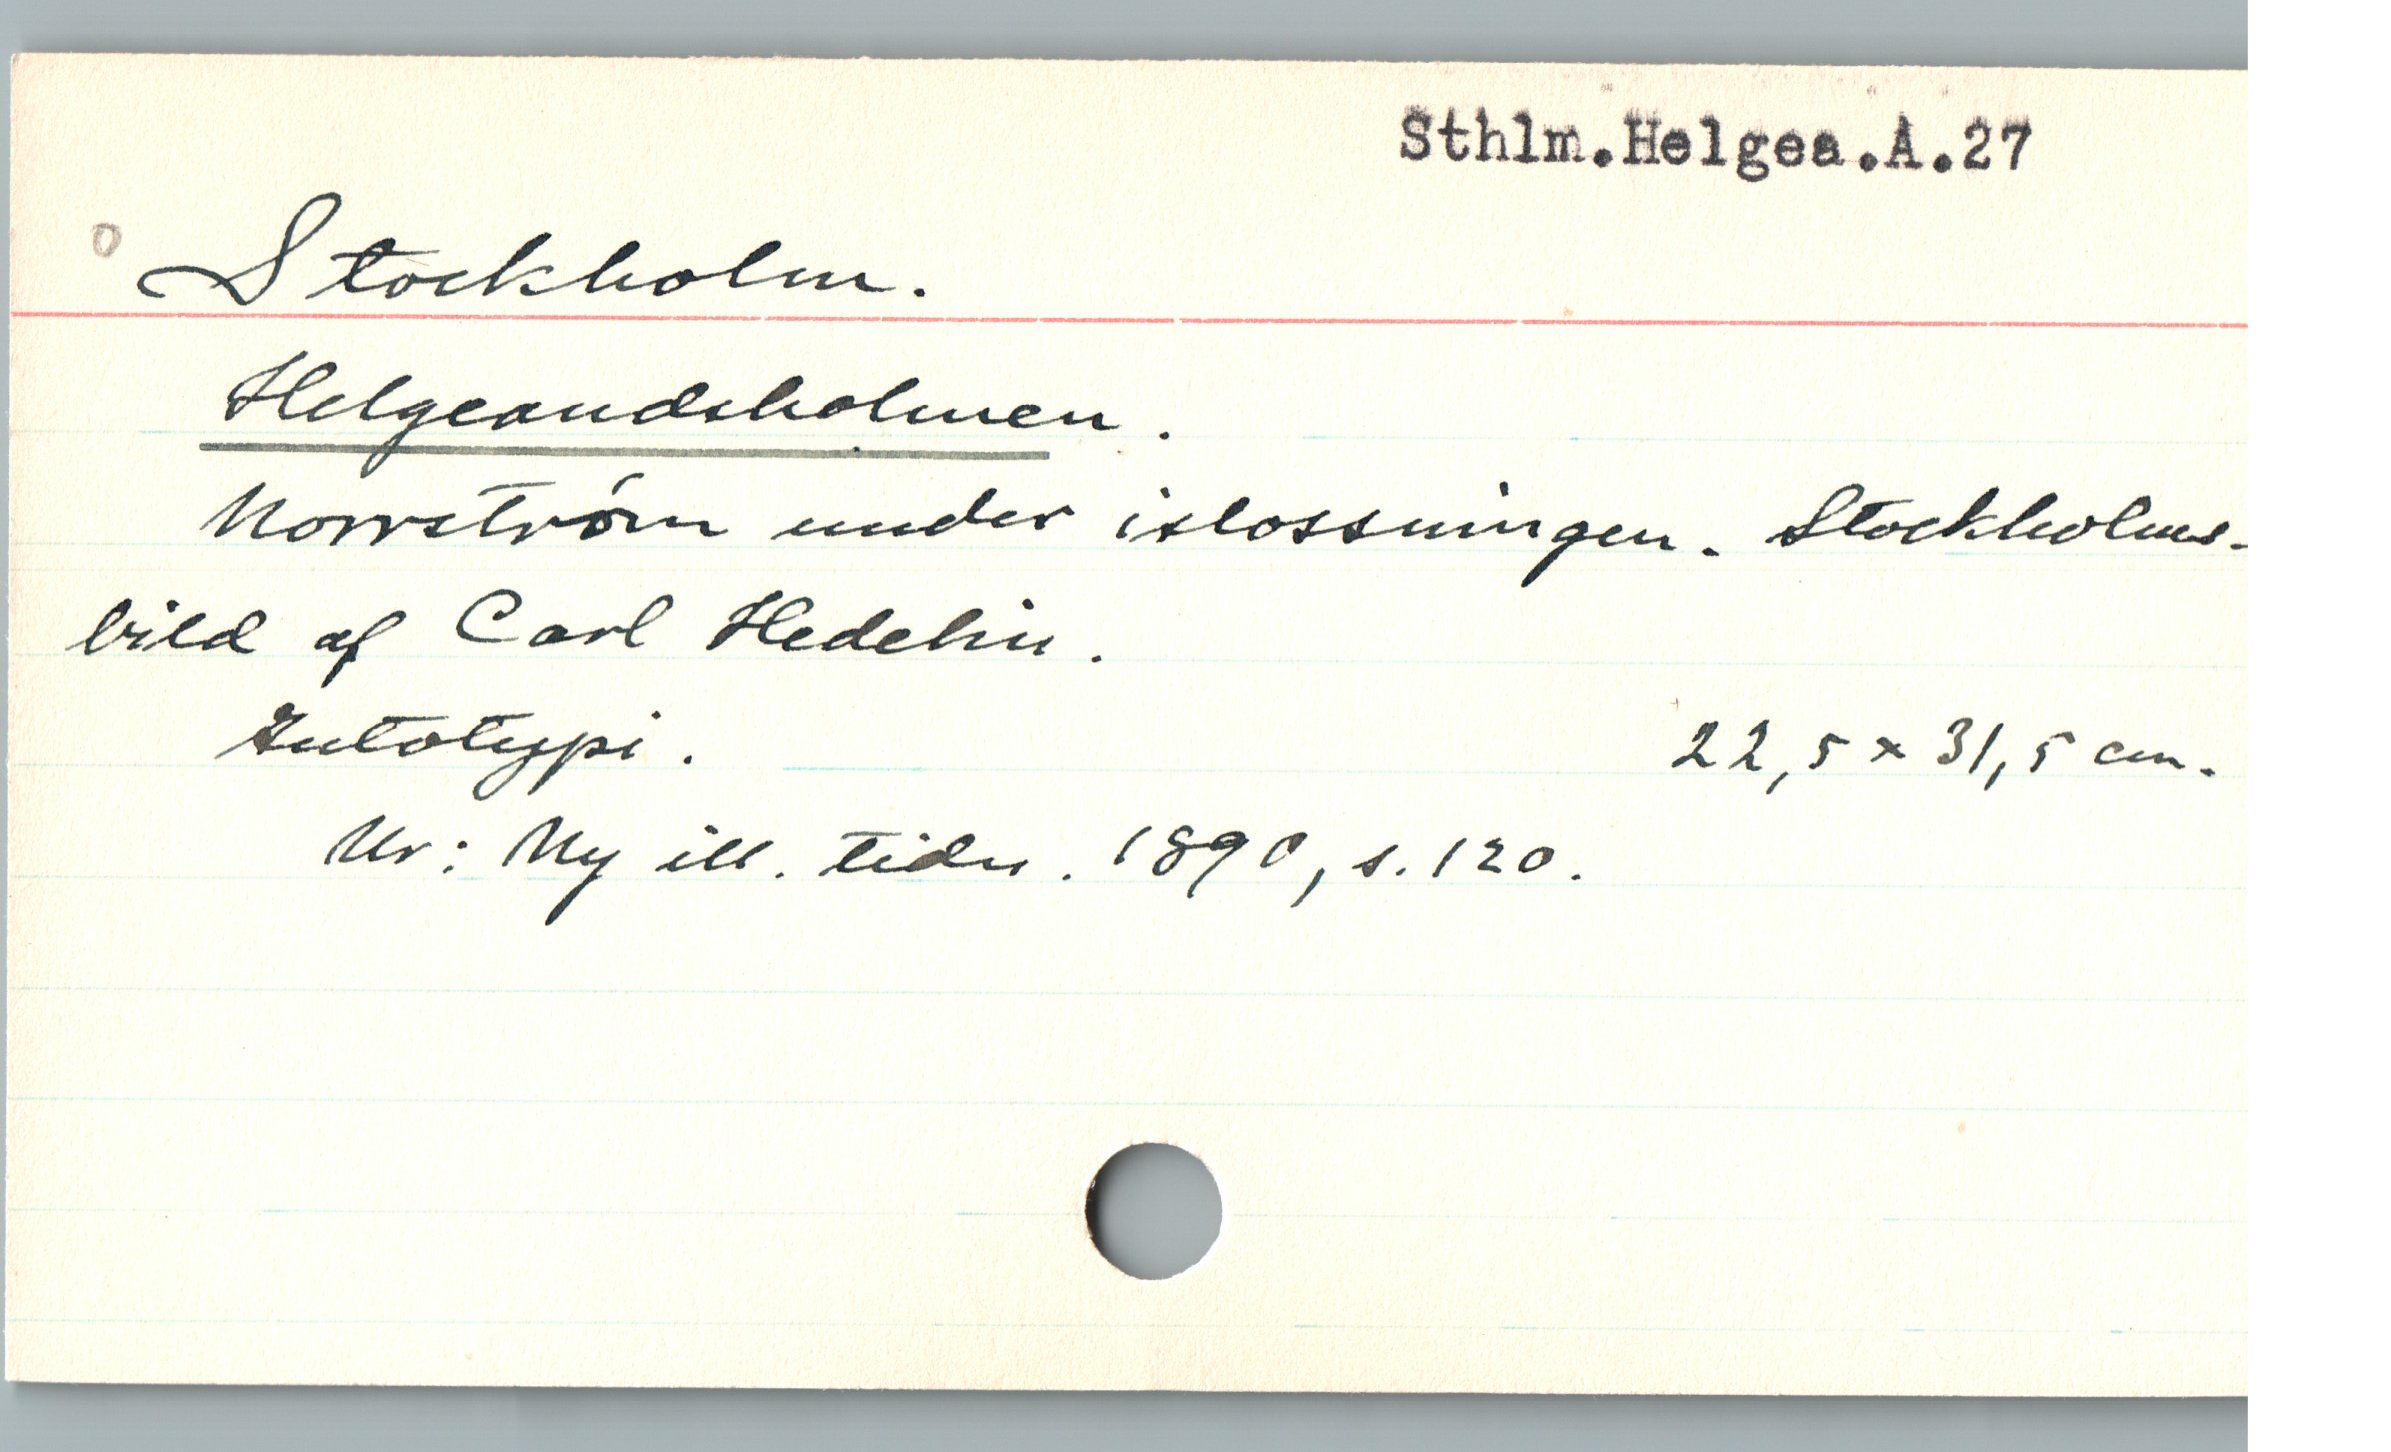 Sthlm.Helgea.A.27
o Stockholm.
Helgeandsholmen.
Norrström under islossningen. Stockholms-
bild af Carl Hedelin.
Autotypi. 22,5 x 31,5 cm.
Ur: Ny ill. tidn. 1890, s. 120.